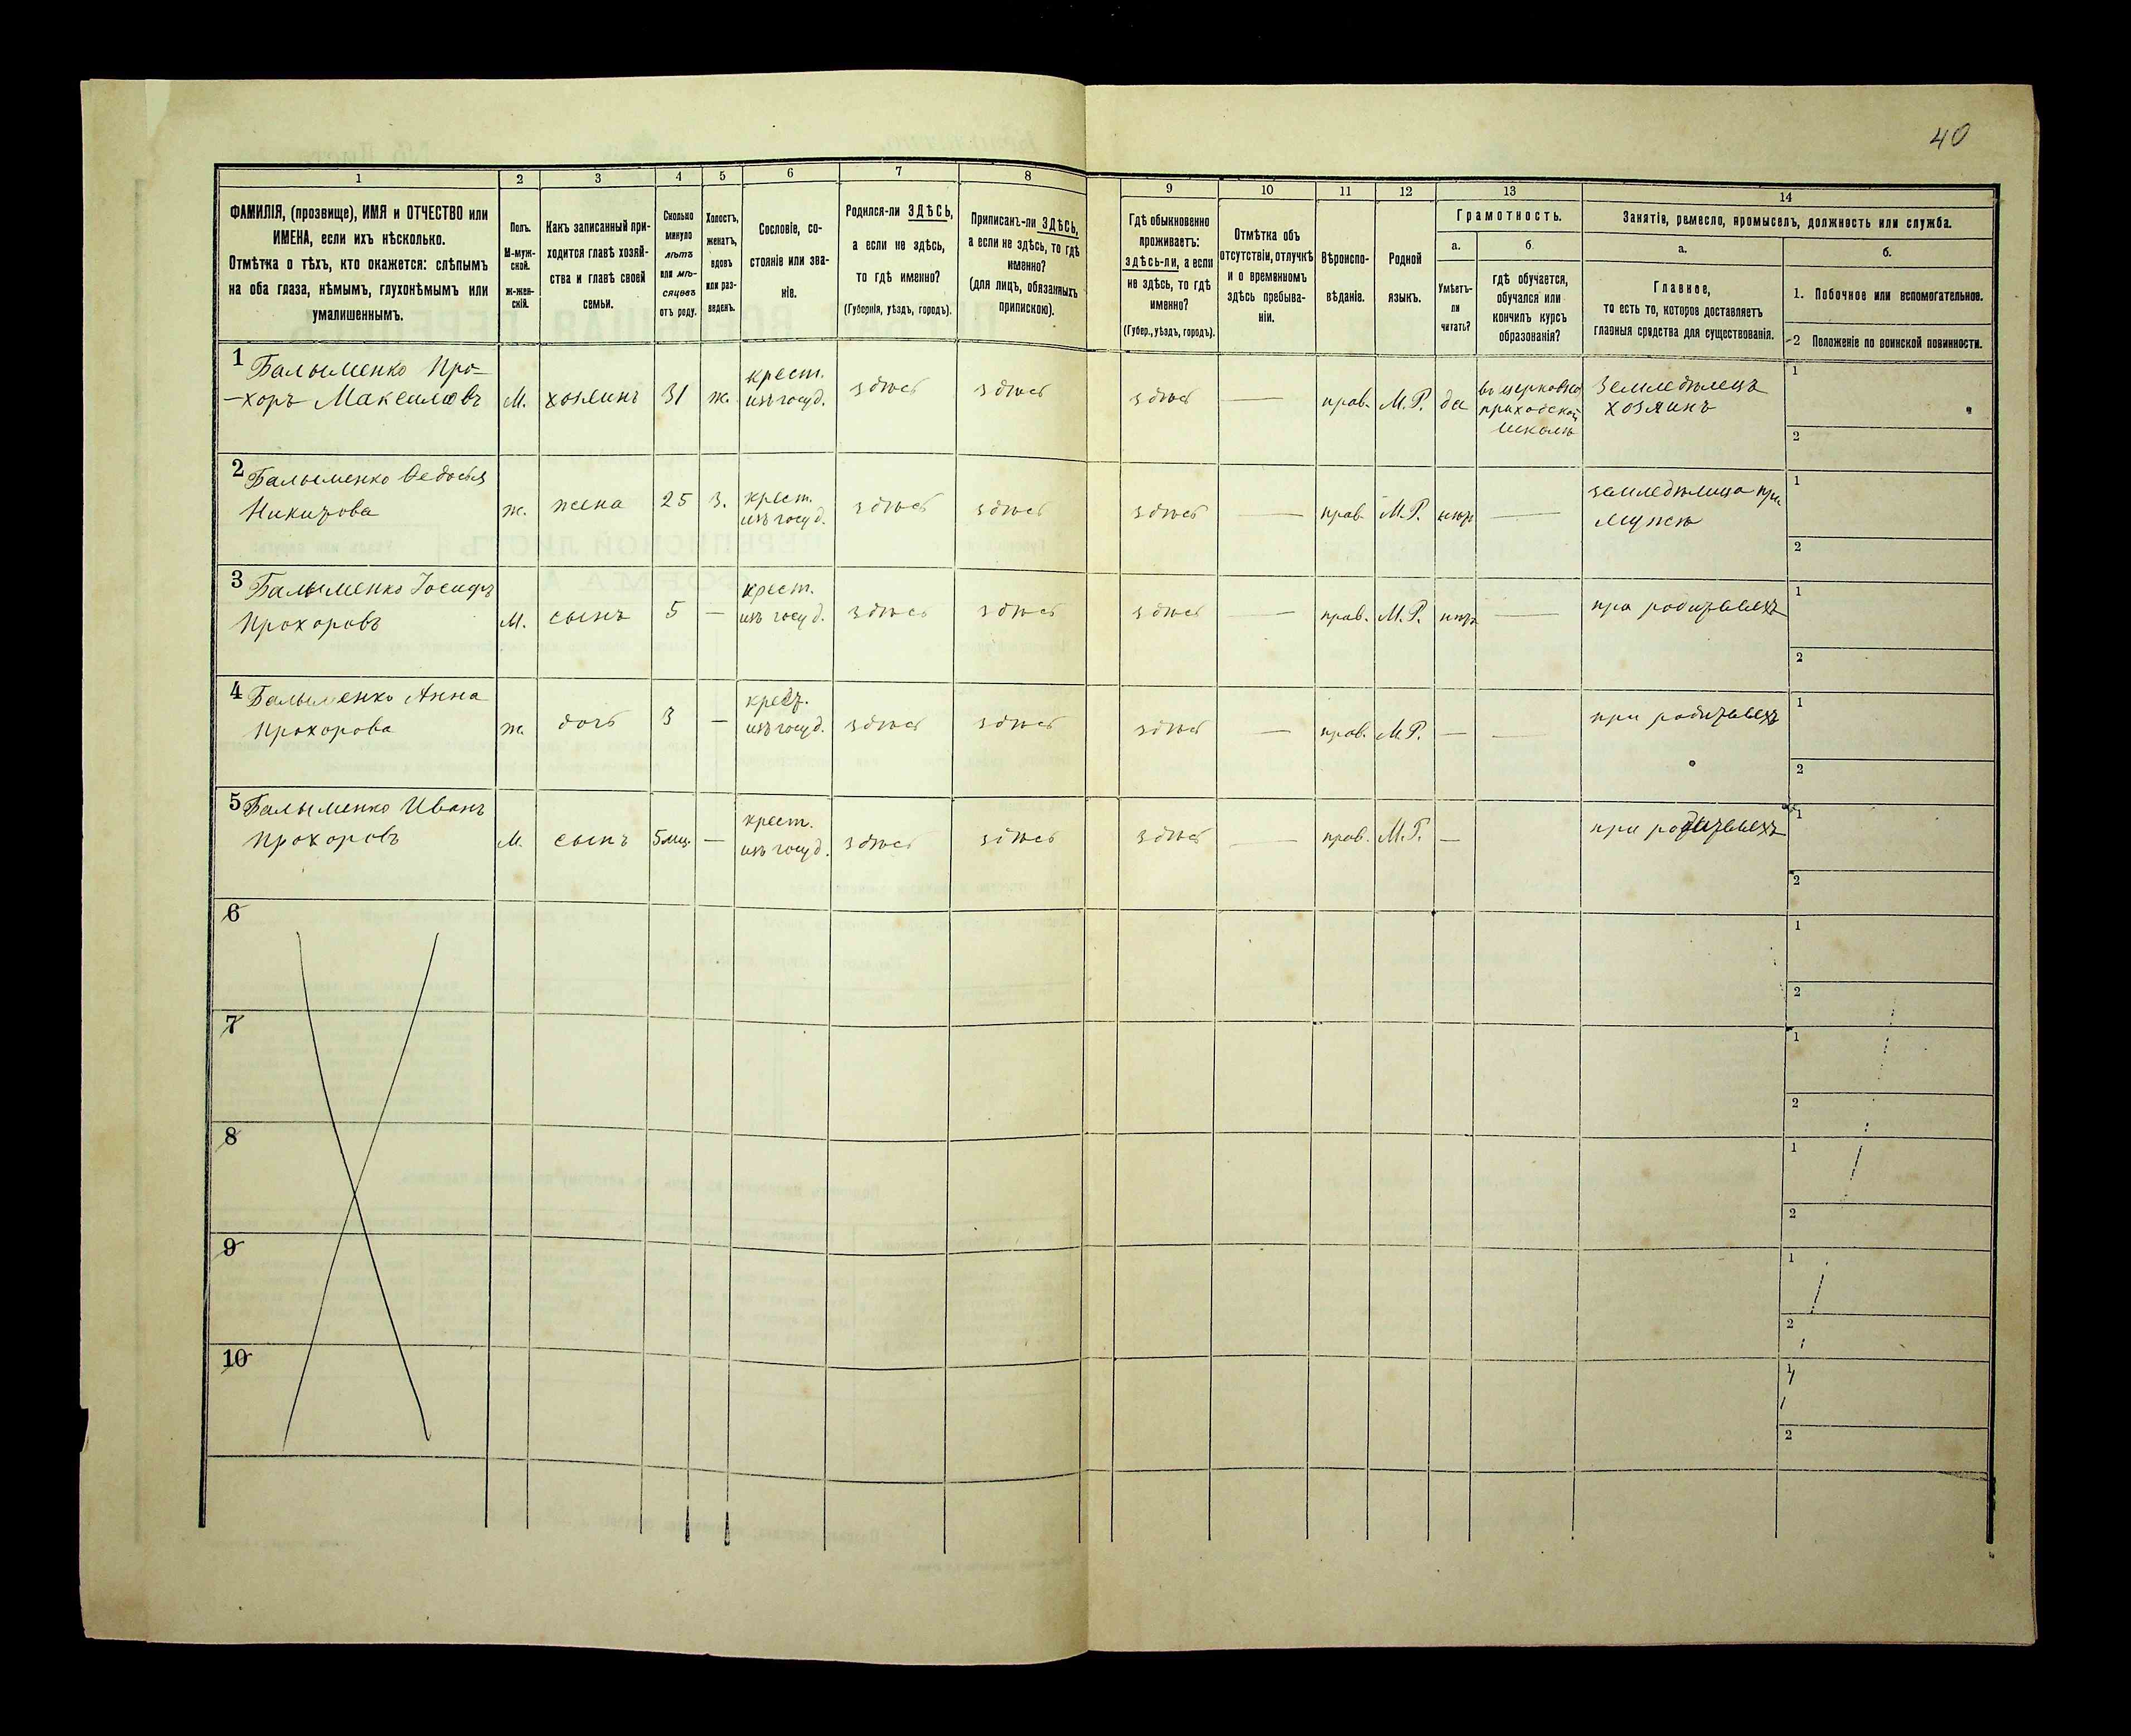 40
1 2 3 4 5 6 7 8 9 10 11 12 13 14
ФАМИЛІЯ, (прозвище), ИМЯ и ОТЧЕСТВО или
ИМЕНА, если ихъ нѣсколько.
Отмѣтка о тѣхъ, кто окажется: слѣпымъ
на оба глаза, нѣмымъ, глухонѣмымъ или
умалишеннымъ.
Полъ.
М-муж-
ской.
ж-жен-
скій.
Какъ записанный при-
ходится главѣ хозяй-
ства и главѣ своей
семьи.
Сколько
минуло
лѣтъ
или мѣ-
сяцевъ
отъ роду.
Холостъ,
женатъ,
вдовъ
или раз-
веденъ.
Сословіе, со-
стояніе или зва-
ніе.
Родился-ли ЗДѢСЬ,
а если не здѣсь,
то гдѣ именно?
(Губернія, уѣздъ, городъ).
Приписанъ-ли ЗДѢСЬ,
а если не здѣсь, то гдѣ
именно?
(для лицъ, обязанныхъ
припискою).
Гдѣ обыкновенно
проживаетъ:
здѣсь-ли, а если
не здѣсь, то гдѣ
именно?
(Губер., уѣздъ, городъ).
Отмѣтка объ
отсутствіи, отлучкѣ
и о временномъ
здѣсь пребыва-
ніи.
Вѣроиспо-
вѣданіе.
Родной
языкъ.
Грамотность.
а. б.
Умѣетъ-
ли
читать?
гдѣ обучается,
обучался или
кончилъ курсъ
образованія?
Занятіе, ремесло, промыселъ, должность или служба.
а. б.
Главное,
то есть то, которое доставляетъ
главныя средства для существованія.
1. Побочное или вспомогательное.
2 Положеніе по воинской повинности.
1 Балыменко Про-
-хоръ Максимовъ М. хозяинъ 31 ж. крест.
изъ госуд. здѣсь здѣсь здѣсь — прав. М.Р. да въ церковно
приходской
школѣ земледѣлецъ
хозяинъ 1
2
2 Балыменко Ѳедосья
Никитова ж. жена 25 з. крест.
изъ госуд. здѣсь здѣсь здѣсь — прав. М.Р. — земледѣлица при
мужѣ 1
2
3 Балыменко Іосифъ
Прохоровъ М. сынъ 5 — крест.
изъ госуд. здѣсь здѣсь здѣсь — прав. М.Р. — при родителяхъ 1
2
4 Балыменко Анна
Прохорова ж. дочь 3 — крест.
изъ госуд. здѣсь здѣсь здѣсь — прав. М.Р. — — при родителяхъ 1
2
5 Балыменко Иванъ
Прохоровъ М. сынъ 5 мц. — крест.
изъ госуд. здѣсь здѣсь здѣсь — прав. М.Р. — при родителяхъ 1
2
6 1
2
7 1
2
8 1
2
9 1
2
10 1
2